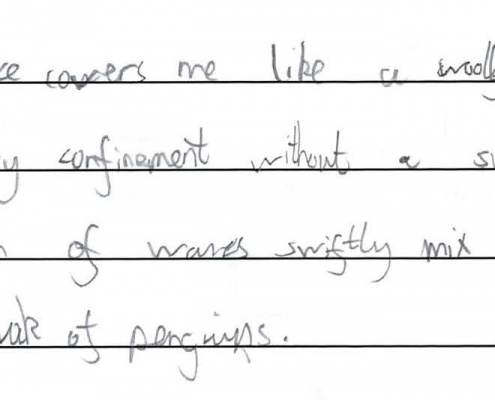 covers me like a wooly
confinement without a
of waves swiftly mix
of penguins.